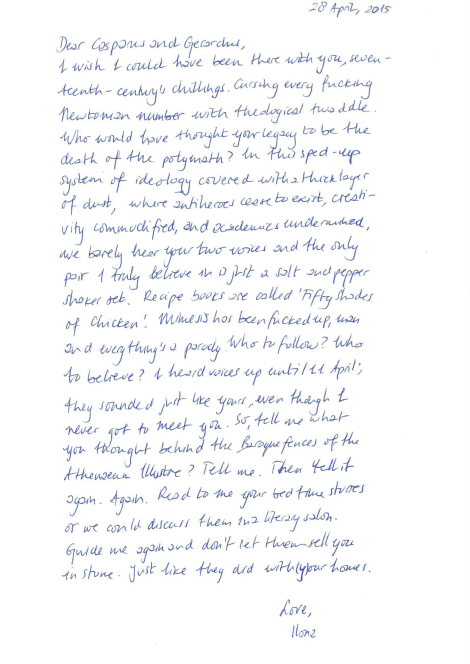 28 April, 2015
Dear Casparus and Gerardus,
I wish I could have been there with you, seven-
teenth-century's chillings. Cursing every fucking
Newtonian number with theological twaddle.
Who would have thought your legacy to be the
death of the polymath? In this sped-up
system of ideology covered with a thick layer
of dust, where antiheroes cease to exist, creati-
vity commodified, and academics undermined,
we barely hear your two voices and the only
pair I truly believe in is just a salt and pepper
shaker set. Recipe books are called 'Fifty Shades
of Chicken'. Mimesis has been fucked up, man
and everything's a parody. Who to follow? Who
to believe? I heard voices up until 11 April;
they sounded just like yours, even though I
never got to meet you. So, tell me what
you thought behind the Baroque fences of the
Athenaeum Illustre? Tell me. Then tell it
again. Again. Read to me your bedtime stories
or we could discuss them in a literary salon.
Guide me again and don't let them sell you
in stone. Just like they did with your homes.
Love,
Ilona